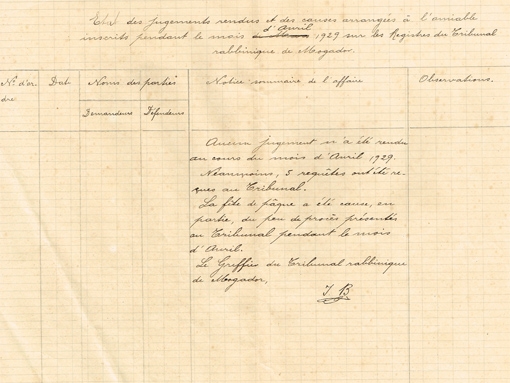 Etat des jugements rendus et des causes arrangées à l'amiable
inscrits pendant le mois d'Avril 1929 sur les Registres du Tribunal
rabbinique de Mogador.
N° d'or
dre
Dat
Noms des parties
Demandeurs
Défendeurs
Notice sommaire de l'affaire
Observations.
Aucun jugement n'a été rendu
au cours du mois d'Avril 1929.
Néanmoins, 5 requêtes ont été re-
çues au Tribunal.
La fête de pâque a été cause, en
partie, du peu de procès présentés
au Tribunal pendant le mois
d'Avril.
Le Greffier du Tribunal rabbinique
de Mogador,
J B